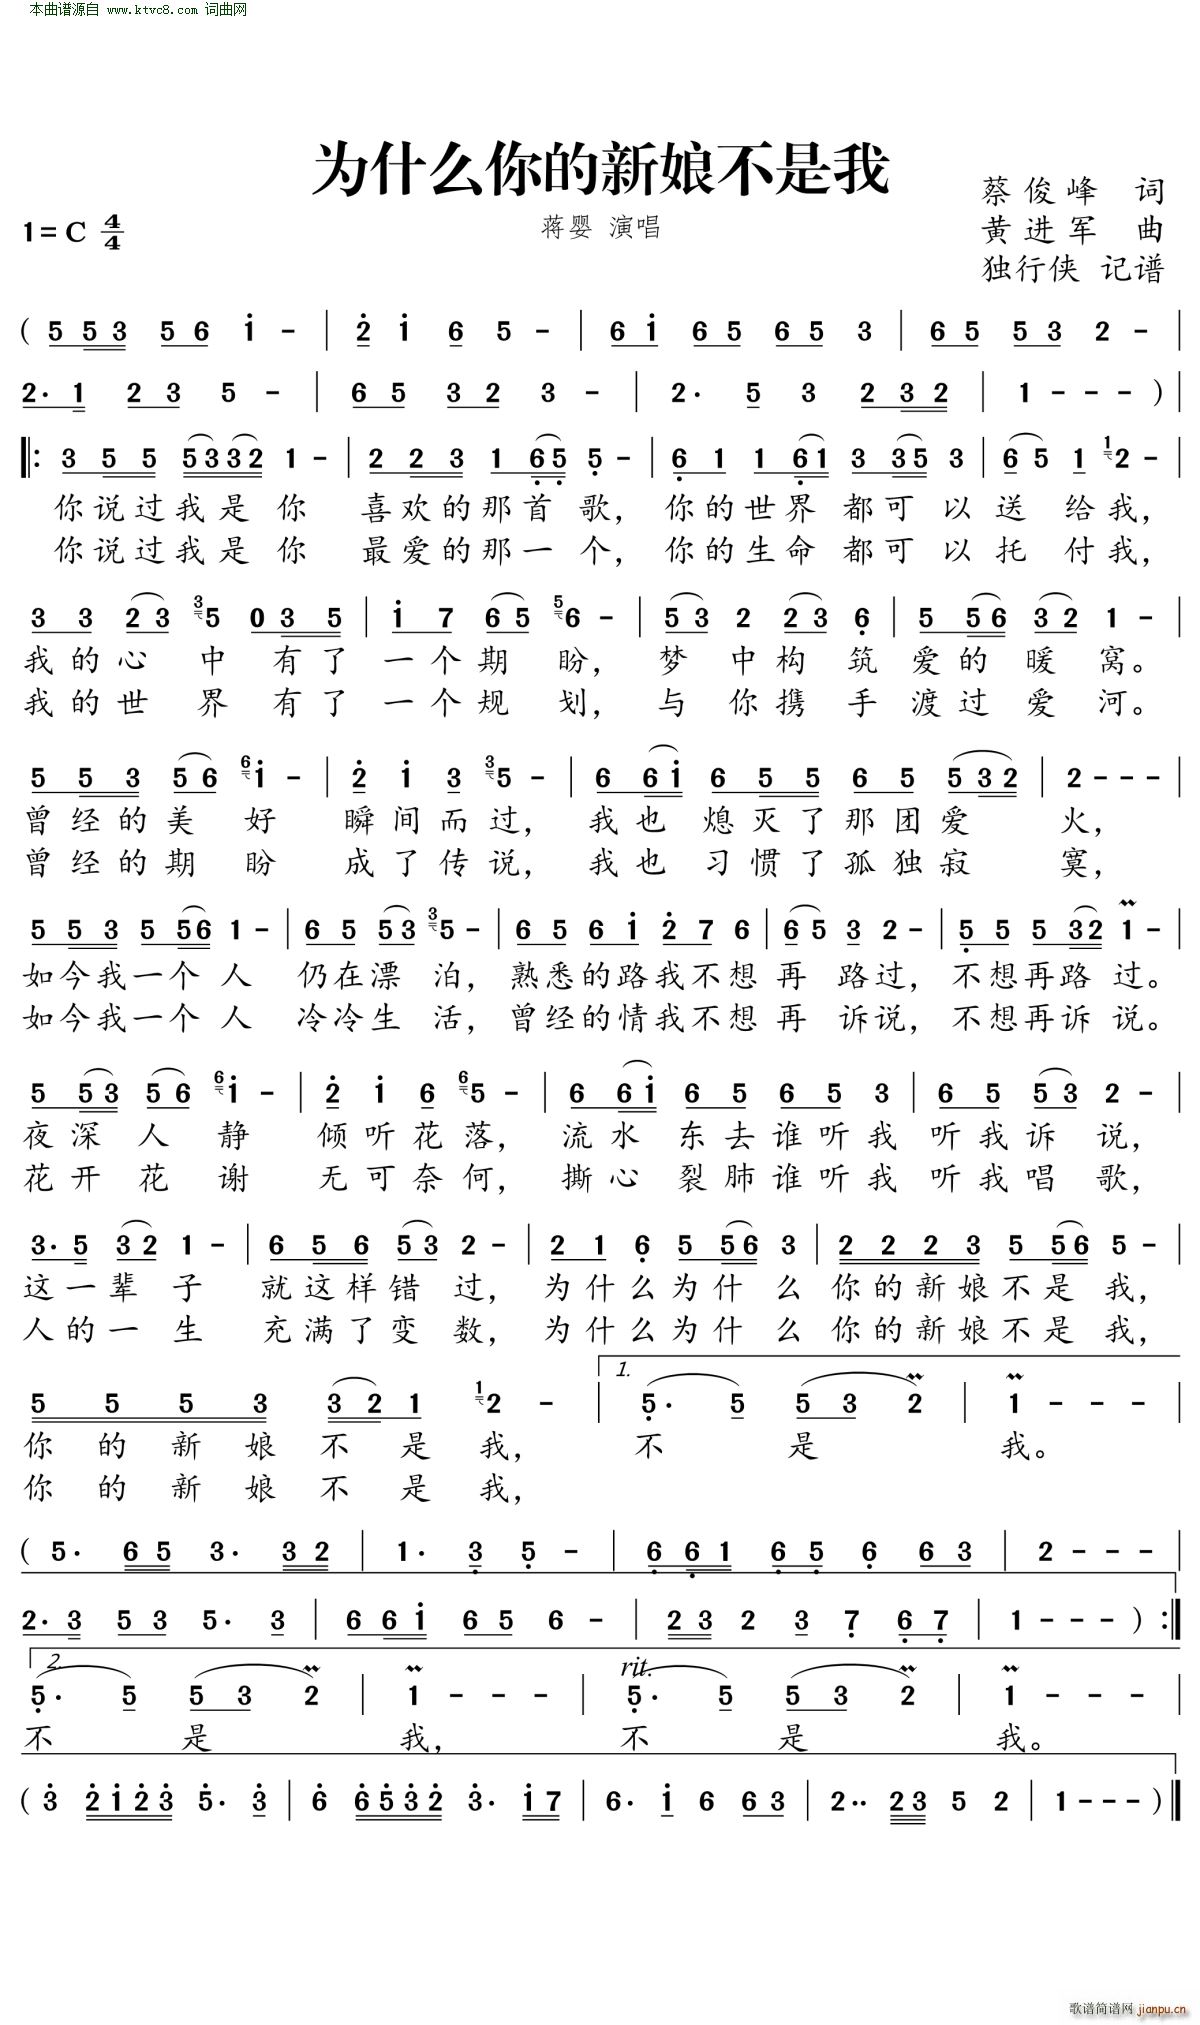 本曲谱源自 www.ktvc8.com 词曲网
为什么你的新娘不是我
蔡俊峰 词
1=C 4/4
蒋婴 演唱
黄进军 曲
独行侠 记谱
( 5 5 3 5 6 i - | 2 i 6 5 - | 6 i 6 5 6 5 3 | 6 5 5 3 2 - |
2. 1 2 3 5 - | 6 5 3 2 3 - | 2. 5 3 2 3 2 | 1 - - - ) |
‖: 3 5 5 5 3 3 2 1 - | 2 2 3 1 6 5 5 - | 6 1 1 6 1 3 3 5 3 | 6 5 1 1 2 - |
你说过我是你 喜欢的那首歌, 你的世界都可以送给我,
你说过我是你 最爱的那一个, 你的生命都可以托付我,
3 3 2 3 3 5 0 3 5 | i 7 6 5 5 6 - | 5 3 2 2 3 6 | 5 5 6 3 2 1 - |
我的心中有了一个期盼, 梦中构筑爱的暖窝。
我的世界有了一个规划, 与你携手渡过爱河。
5 5 3 5 6 6 i - | 2 i 3 3 5 - | 6 6 i 6 5 5 6 5 5 3 2 | 2 - - - |
曾经的美好 瞬间而过, 我也熄灭了那团爱火,
曾经的期盼 成了传说, 我也习惯了孤独寂寞,
5 5 3 5 5 6 1 - | 6 5 5 3 3 5 - | 6 5 6 i 2 7 6 | 6 5 3 2 - | 5 5 5 3 2 1 - |
如今我一个人 仍在漂泊, 熟悉的路我不想再路过, 不想再路过。
如今我一个人 冷冷生活, 曾经的情我不想再诉说, 不想再诉说。
5 5 3 5 6 6 i - | 2 i 6 6 5 - | 6 6 i 6 5 6 5 3 | 6 5 5 3 2 - |
夜深人静 倾听花落, 流水东去谁听我听我诉说,
花开花谢 无可奈何, 撕心裂肺谁听我听我唱歌,
3. 5 3 2 1 - | 6 5 6 5 3 2 - | 2 1 6 5 5 6 3 | 2 2 2 3 5 5 6 5 - |
这一辈子 就这样错过, 为什么为什么你的新娘不是我,
人的一生 充满了变数, 为什么为什么你的新娘不是我,
5 5 5 3 3 2 1 1 2 - | 1. 5. 5 5 3 2 | 1 - - - |
你的新娘不是我, 不是我。
你的新娘不是我,
( 5. 6 5 3. 3 2 | 1. 3 5 - | 6 6 1 6 5 6 6 3 | 2 - - - |
2. 3 5 3 5. 3 | 6 6 i 6 5 6 - | 2 3 2 3 7 6 7 | 1 - - - ) :‖
2. 5. 5 5 3 2 | 1 - - - | rit. 5. 5 5 3 2 | 1 - - - |
不是我, 不是我。
( 3 2 i 2 3 5. 3 | 6 6 5 3 2 3. i 7 | 6. i 6 6 3 | 2.. 2 3 5 2 | 1 - - - ) ‖
歌谱简谱网 jianpu.cn